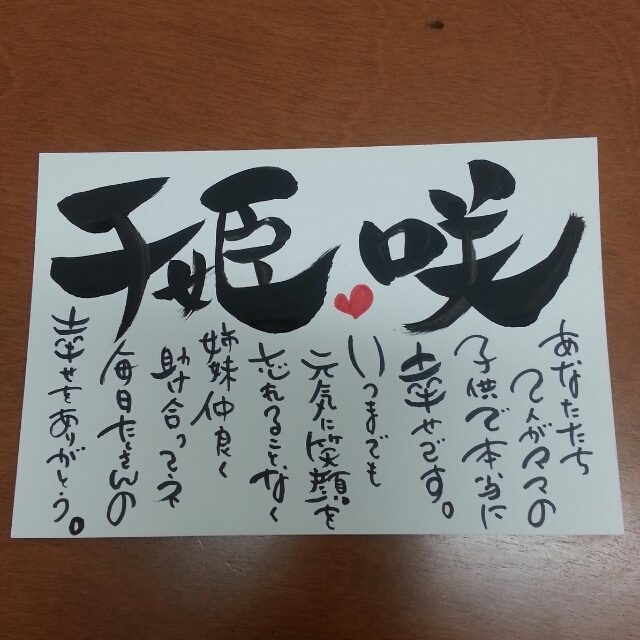 千姫❤咲
あなたたち
2人がママの
子供で本当に
幸せです。
いつまでも
元気に笑顔を
忘れることなく
姉妹仲良く
助け合ってネ
毎日たくさんの
幸せをありがとう。